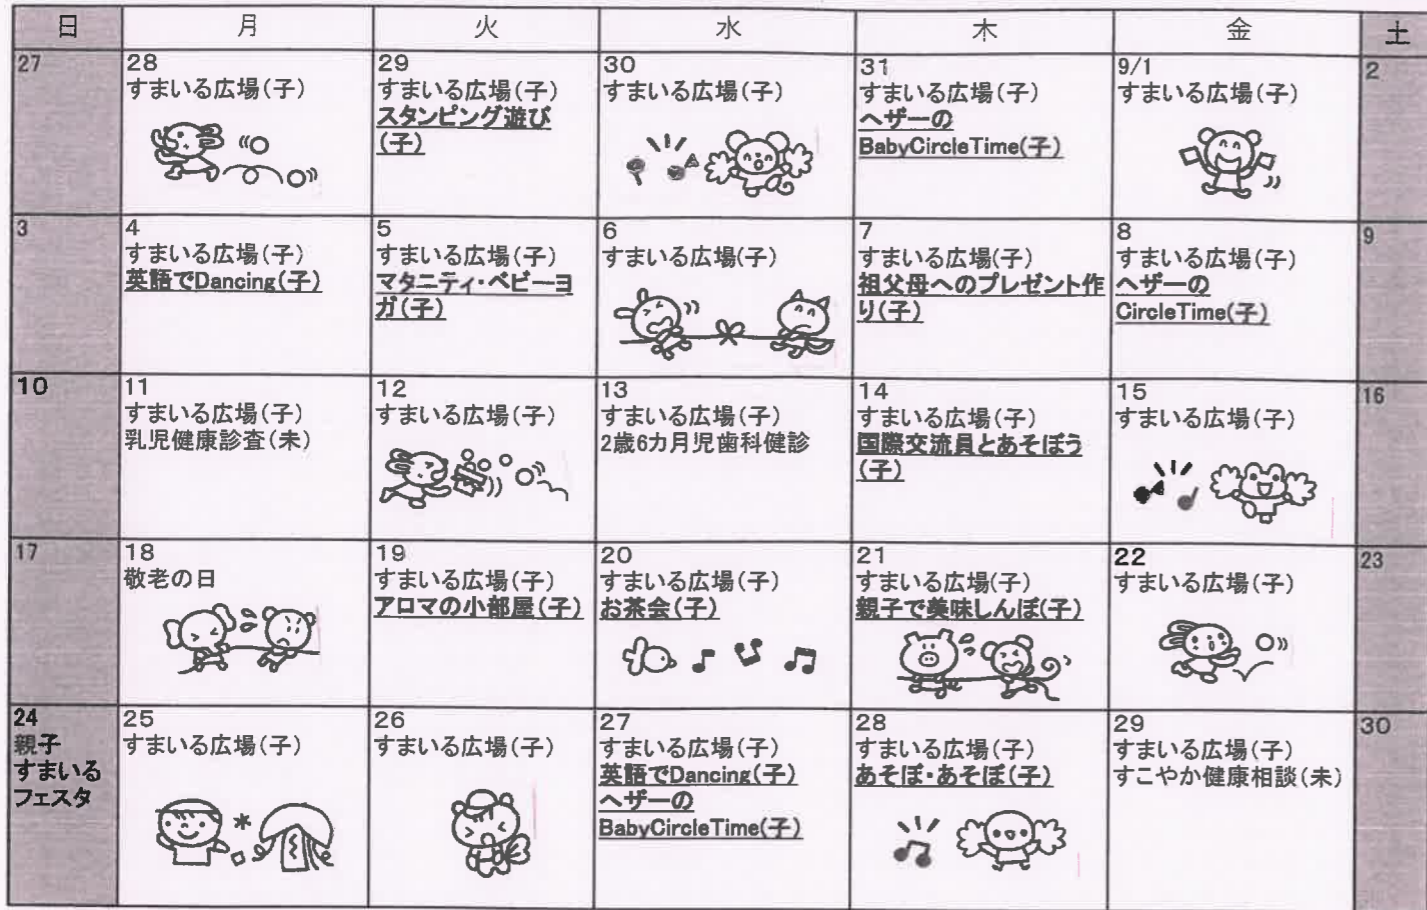 日 月 火 水 木 金 土
27
28
すまいる広場(子)
29
すまいる広場(子)
スタンピング遊び
(子)
30
すまいる広場(子)
31
すまいる広場(子)
ヘザーの
BabyCircleTime(子)
9/1
すまいる広場(子)
2
3
4
すまいる広場(子)
英語でDancing(子)
5
すまいる広場(子)
マタニティ・ベビーヨ
ガ(子)
6
すまいる広場(子)
7
すまいる広場(子)
祖父母へのプレゼント作
り(子)
8
すまいる広場(子)
ヘザーの
CircleTime(子)
9
10
11
すまいる広場(子)
乳児健康診査(未)
12
すまいる広場(子)
13
すまいる広場(子)
2歳6カ月児歯科健診
14
すまいる広場(子)
国際交流員とあそぼう
(子)
15
すまいる広場(子)
16
17
18
敬老の日
19
すまいる広場(子)
アロマの小部屋(子)
20
すまいる広場(子)
お茶会(子)
21
すまいる広場(子)
親子で美味しんぼ(子)
22
すまいる広場(子)
23
24
親子
すまいる
フェスタ
25
すまいる広場(子)
26
すまいる広場(子)
27
すまいる広場(子)
英語でDancing(子)
ヘザーの
BabyCircleTime(子)
28
すまいる広場(子)
あそぼ・あそぼ(子)
29
すまいる広場(子)
すこやか健康相談(未)
30